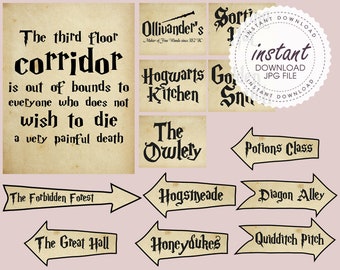 The third floor
corridor
is out of bounds to
everyone who does not
wish to die
a very painful death
Ollivander's
Maker of Fine Wands since 382 BC
Hogwarts
Kitchen
The
Owlery
INSTANT DOWNLOAD
instant
DOWNLOAD
JPG FILE
INSTANT DOWNLOAD
Potions Class
The Forbidden Forest
Hogsmeade
Diagon Alley
The Great Hall
Honeydukes
Quidditch Pitch